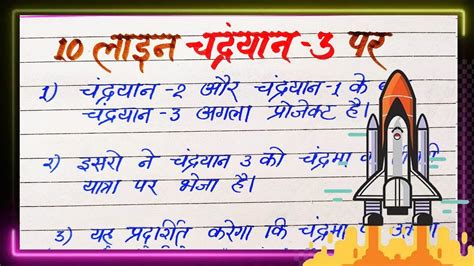 10 लाइन चद्रंयान -3 पर
1) चंद्रयान -2 और चंद्रयान -1 के
चंद्रयान -3 अगला प्रोजेक्ट है।
2) इसरो ने चंद्रयान 3 को चंद्रमा
यात्रा पर भेजा है।
3) यह प्रदर्शित करेगा कि चंद्रमा